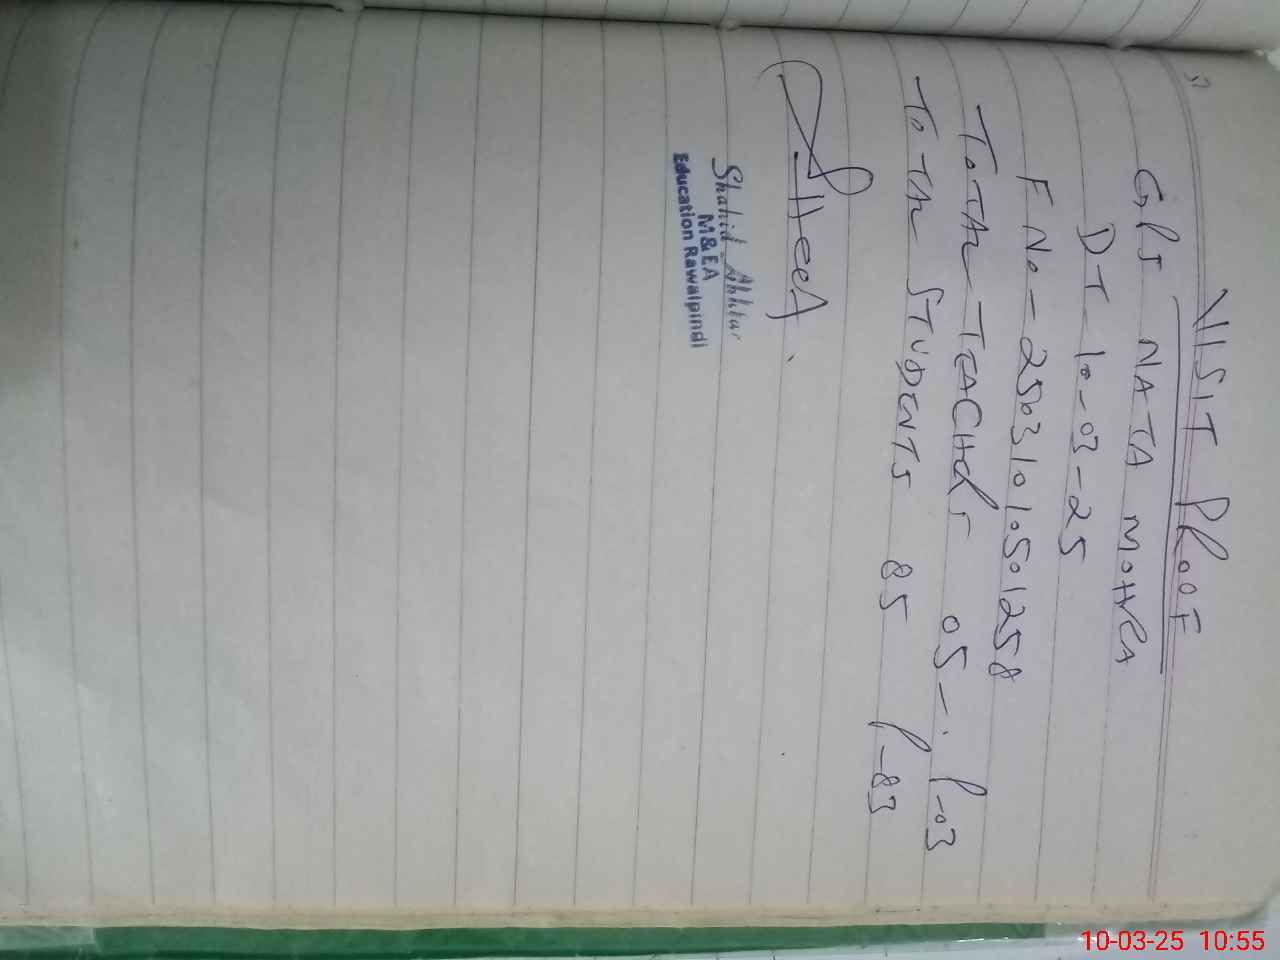 VISIT PROOF
GPS NATA MOHRA
DT - 10-03-25
F No - 25031010501258
TOTAL TEACHERS 05 - P-03
TOTAL STUDENTS 85 P-83
Shahid Akhtar
M&EA
Education Rawalpindi
10-03-25 10:55